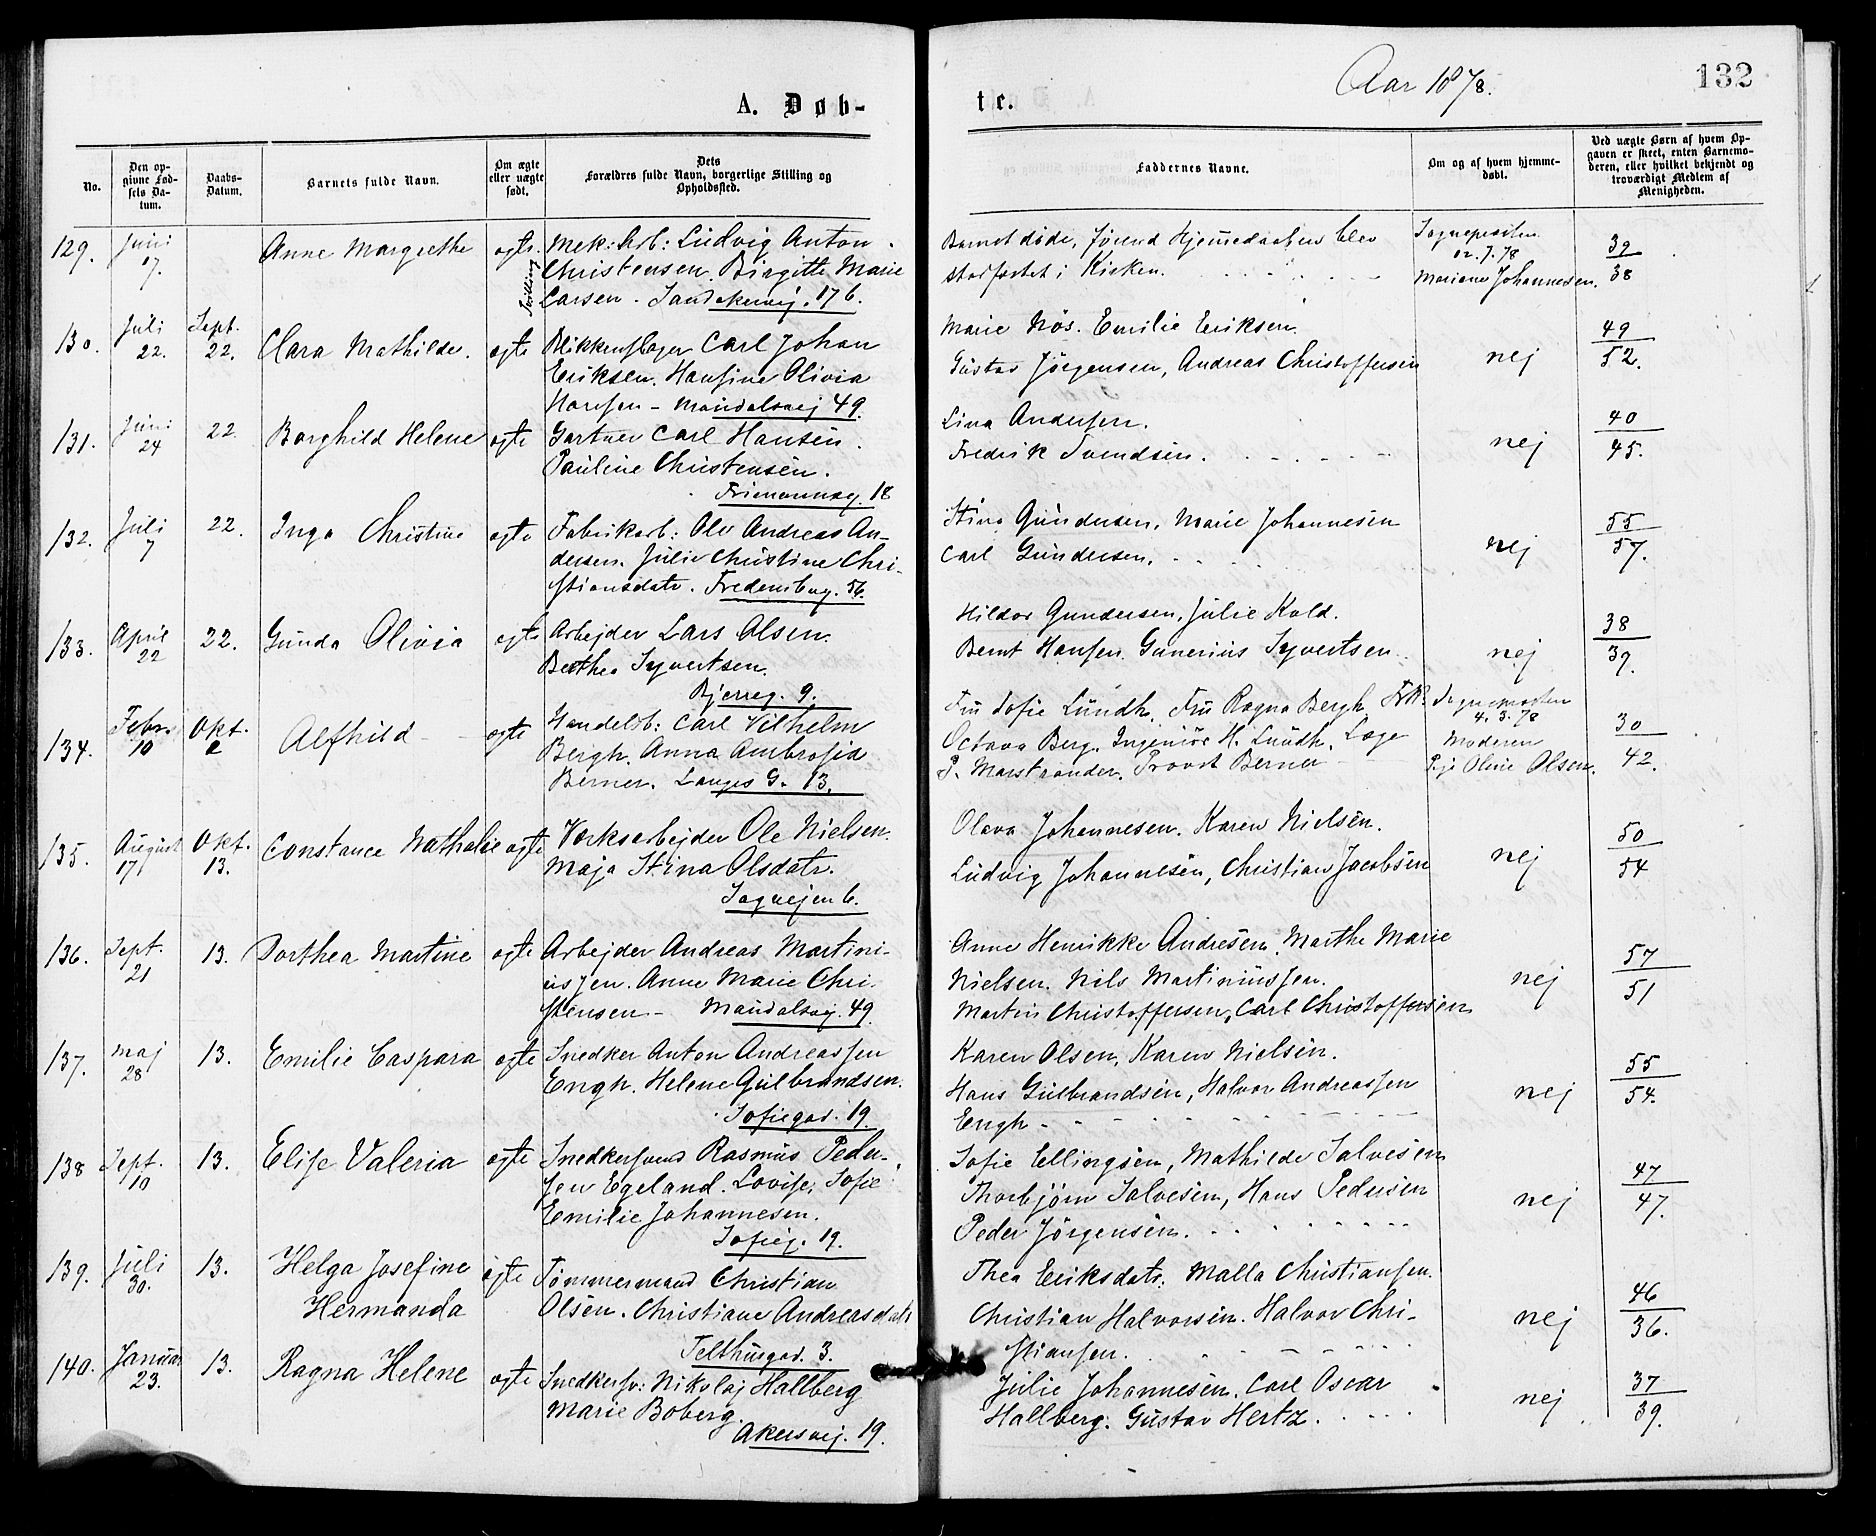 Aar 1878.
132
A. Døb-
te.
No.
Den op-
givne Fød-
sels Da-
tum.
Daabs-
Datum.
Barnets fulde Navn.
Om ægte
eller uægte
født.
Dets
Forældres fulde Navn, borgerlige Stilling og
Opholdssted.
Faddernes Navne.
Om og af hvem hjemme-
døbt.
Ved uægte Børn af hvem Op-
gaven er skeet, enten Barnemo-
deren, eller hvilket bekjendt og
troværdigt Medlem af
Menigheden.
129. Juni 17. Anne Margrethe ægte Tvilling
Mek: Arb: Ludvig Anton
Christensen. Birgitte Marie
Larsen. Sandakervej. 176.
Barnet døde, førend Hjemmedaaben blev
stadfæstet i Kirken.
Sognepresten
12.7.78
Mariane Johannesen.
39
38
130. Juli 22. Sept. 22. Clara Mathilde. ægte
Blikkenslager Carl Johan
Eriksen. Hansine Olivia
Hansen - Maridalsvej 49.
Marie Nös. Emilie Eriksen.
Gustav Jörgensen, Andreas Christoffersen
nej
49
52.
131. Juni 24 22 Borghild Helene ægte
Gartner Carl Hansen.
Pauline Christensen.
Frimannsg. 18
Lina Andersen.
Fredrik Svendsen.
nej
40
45.
132. Juli 7 22. Inga Christine ægte
Fabrikarb: Ole Andreas An-
dersen. Julie Christine Chri-
stiansdatr. Fredensborg. 56.
Stina Gundersen, Marie Johannesen
Carl Gundersen.
nej
55
57.
133. April 22 22. Gunda Olivia ægte
Arbejder Lars Olsen.
Berthea Syvertsen.
Bjerreg. 9.
Hildor Gundersen, Julie Kold.
Bernt Hansen. Gunerius Syvertsen
nej
38
39.
134. Febr. 10 Okt. 2 Alfhild ægte
Handelsb: Carl Vilhelm
Bergh. Anna Ambrosia
Berner. Langes G. 13.
Fru Sofie Lundh, Fru Ragna Bergh Frk.
Octava Berg. Ingeniör H. Lundh. Læge
P. Marstrander. Provst Berner
Sognepresten
4.3.78
Moderen
Pige Oline Olsen.
30
42.
135. August 17 Okt. 13. Constance Nathalie ægte
Værksarbejder Ole Nielsen.
Maja Stina Olsdatr.
Sagvejen 6.
Olava Johannesen. Karen Nielsen.
Ludvig Johannesen, Christian Jacobsen
nej
50
54
136. Sept. 21 13. Dorthea Martine ægte
Arbejder Andreas Martini-
ussen. Anne Marie Chri-
stensen - Maridalsvej. 49.
Anne Henrikke Andresen. Marthe Marie
Nielsen. Nils Martiniussen.
Martin Christoffersen, Carl Christoffersen
nej
57
51
137. Maj 28 13. Emilie Caspara ægte
Snedker Anton Andreassen
Engh. Helene Gulbrandsen.
Sofiegad. 19.
Karen Olsen, Karen Nielsen.
Hans Gulbrandsen, Halvor Andreassen
Engh
nej
55
54.
138 Sept. 10 13. Elise Valeria ægte
Snedkersvend Rasmus Peder-
sen Egeland. Lovise Sofie
Emilie Johannesen.
Sofieg. 19.
Sofie Ellingsen, Mathilde Salvesen
Thorbjörn Salvesen, Hans Pedersen
Peder Jörgensen.
nej
47
47.
139. Juli 30. 13. Helga Josefine ægte
Hermanda
Tømmermand Christian
Olsen. Christiane Andreasdatr
Telthusgad. 3.
Thea Eriksdatr. Malla Christiansen.
Christian Halvorsen. Halvor Chri-
stiansen.
nej
46
36.
140. Januar 23. 13. Ragna Helene ægte
Snedkersv: Nikolaj Hallberg
Marie Boberg.
Akersvej. 19.
Julie Johannesen. Carl Oscar
Hallberg. Gustav Hertz.
nej
37
39.